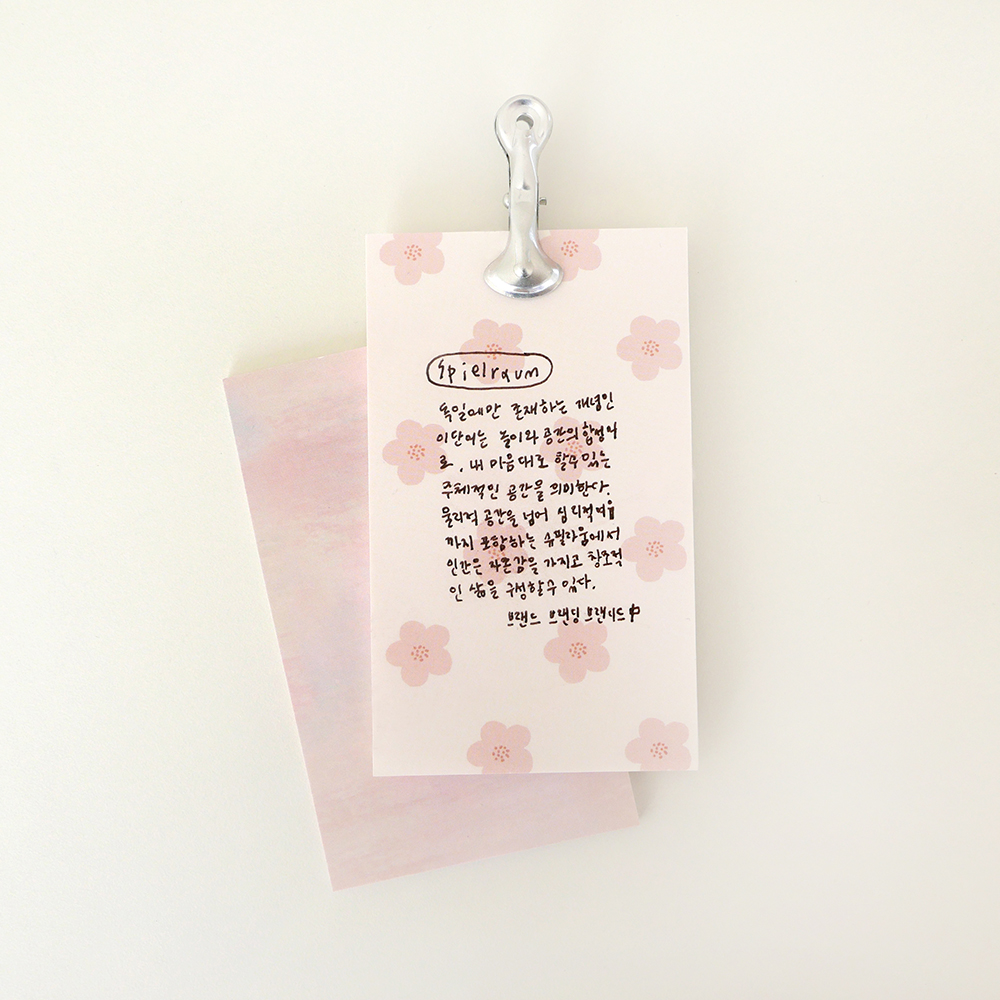 Spielraum
독일에만 존재하는 개념인
이단어는 놀이와 공간의 합성어
로, 내 마음대로 할수 있는
주체적인 공간을 의미한다.
물리적 공간을 넘어 심리적여유
까지 포함하는 슈필라움에서
인간은 자존감을 가지고 창조적
인 삶을 구성할수 있다.
브랜드 브랜딩 브랜니드 中